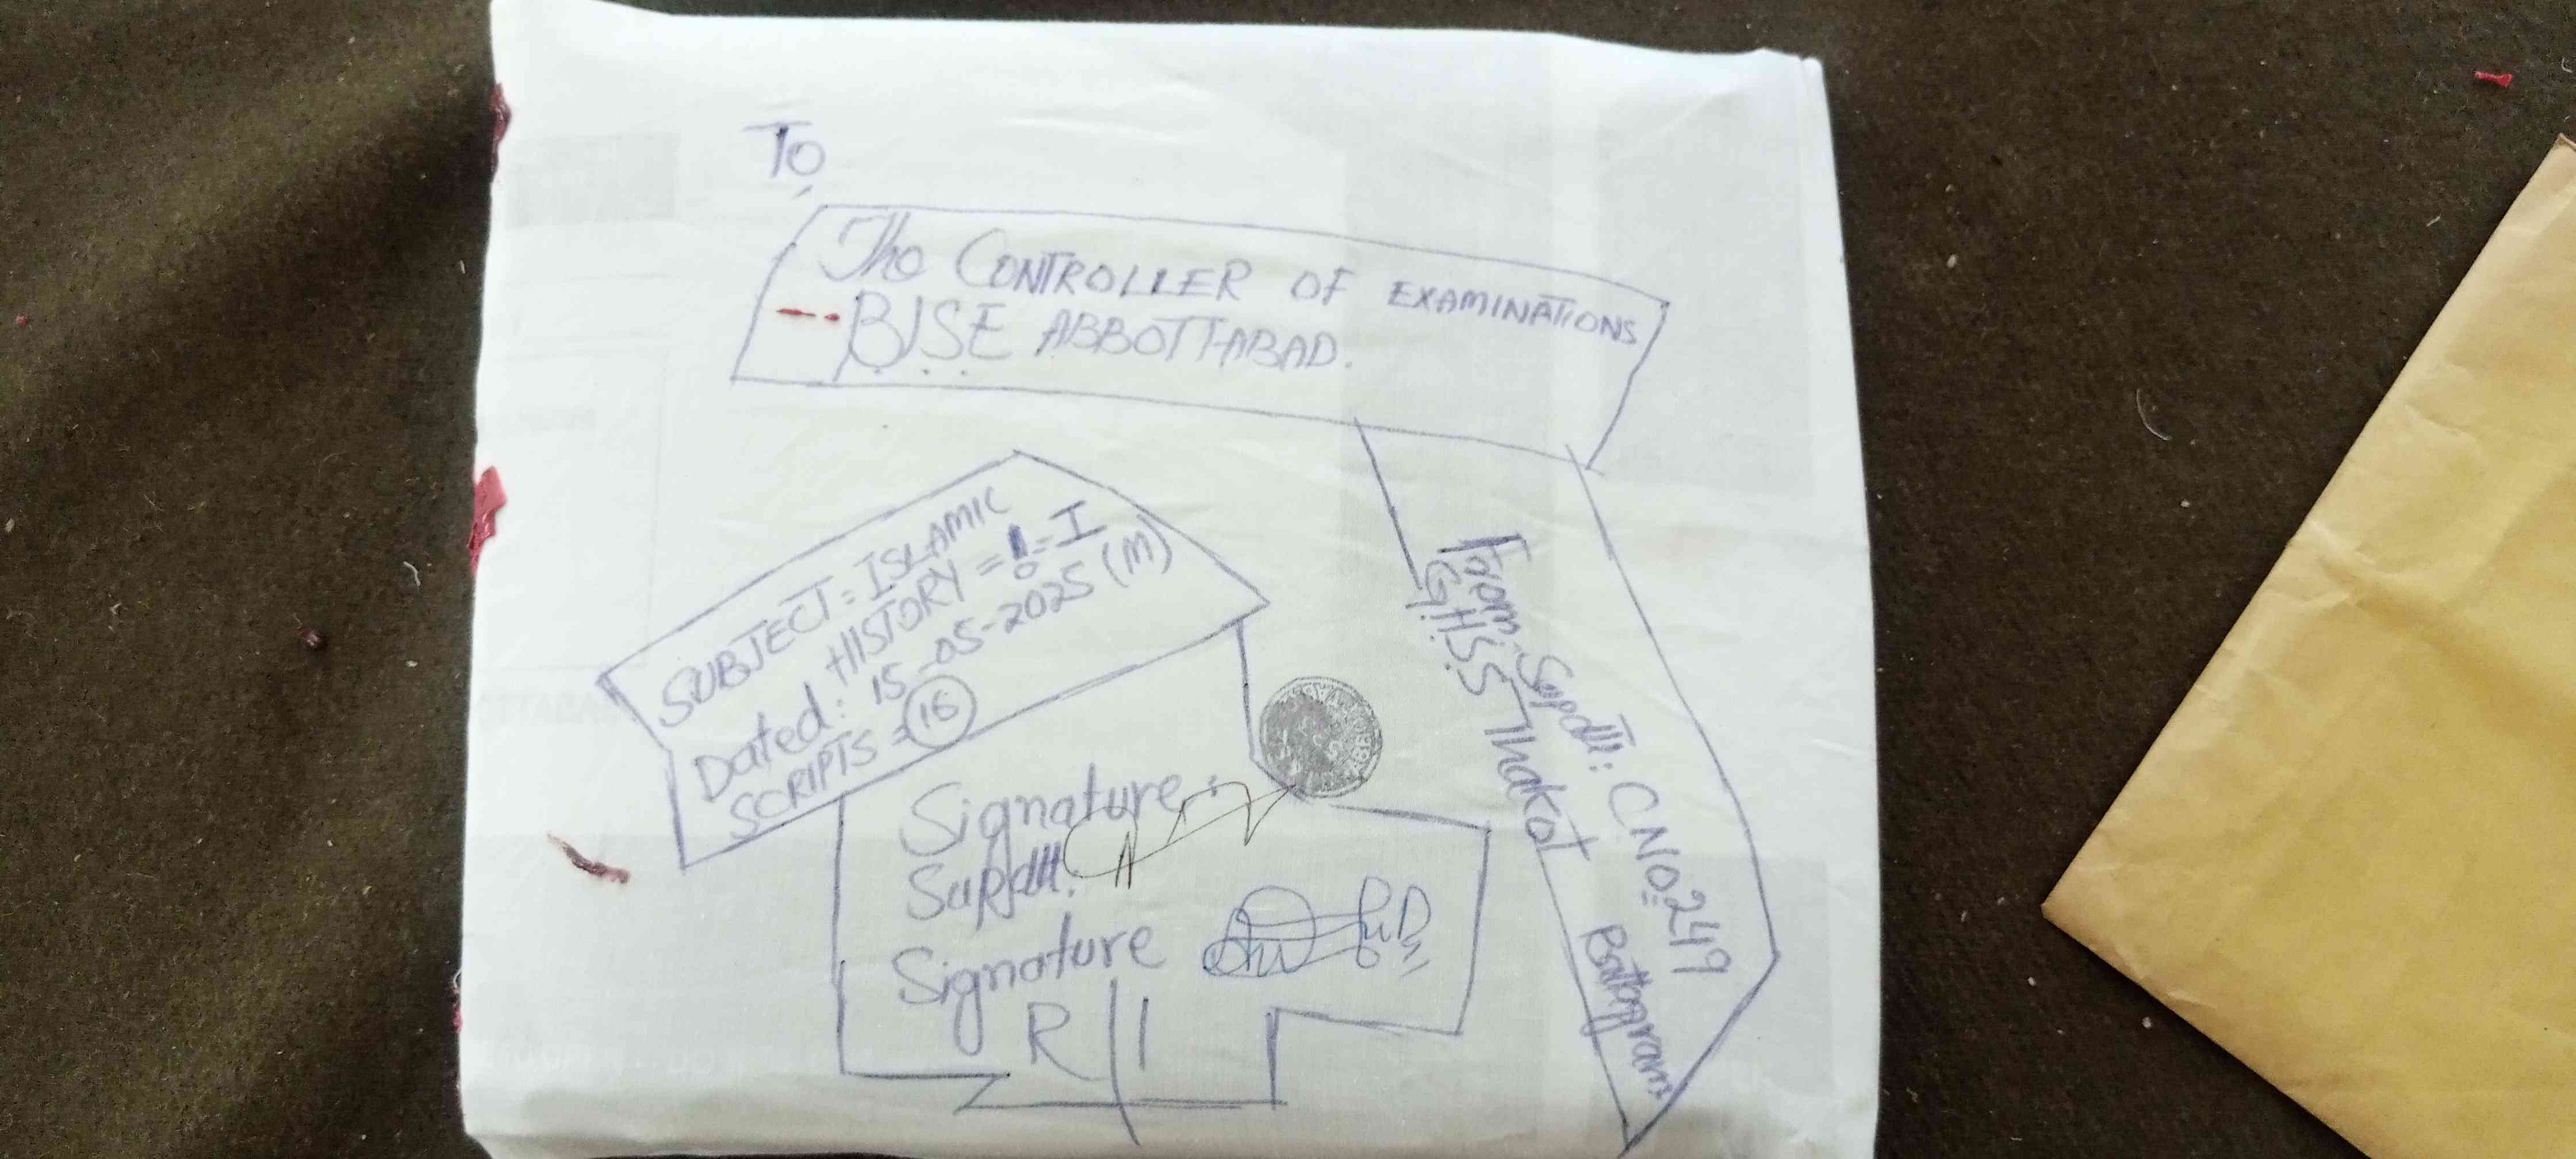 To,
The CONTROLLER OF EXAMINATIONS
BISE ABBOTTABAD.
SUBJECT: ISLAMIC
HISTORY = I
Dated: 15-05-2025 (M)
SCRIPTS = 16
From: Supdtt: CNO 249
GHSS Thakot Battagram
Signature:
Supdtt.
Signature
R/I